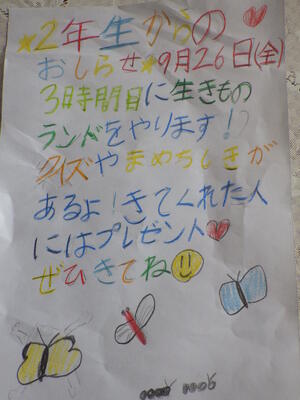 ★2年生からの
おしらせ★9月26日(金)
3時間目に生きもの
ランドをやります!?
クイズやまめちしきが
あるよ!きてくれた人
にはプレゼント♥
ぜひきてね